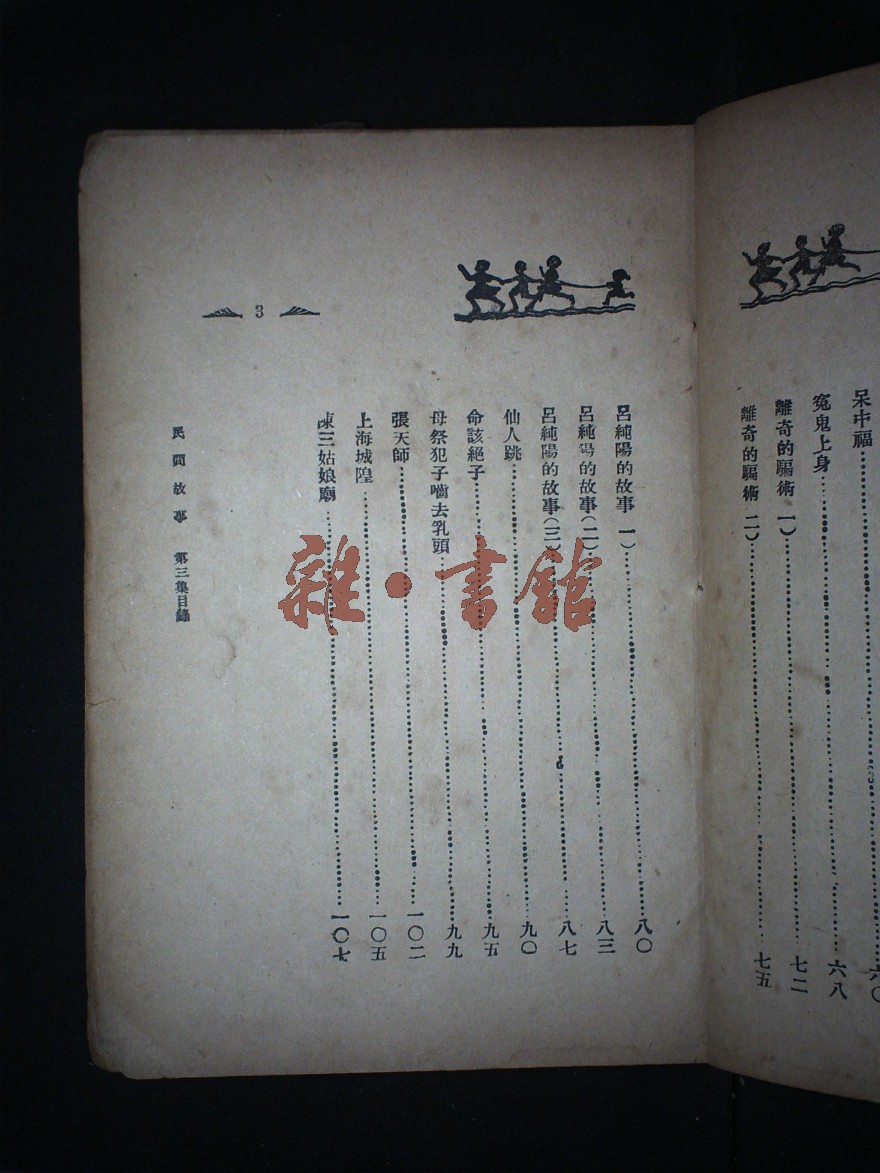 呆中福……六〇
冤鬼上身……六八
離奇的騙術 一)……七二
離奇的騙術 二)……七五
呂純陽的故事 一)……八〇
呂純陽的故事(二)……八三
呂純陽的故事(三)……八七
仙人跳……九〇
命該絕子……九五
母祭犯子嚙去乳頭……九九
張天師……一〇二
上海城隍……一〇五
陳三姑娘廟……一〇七
民間故事 第三集目錄
3
雜·書館